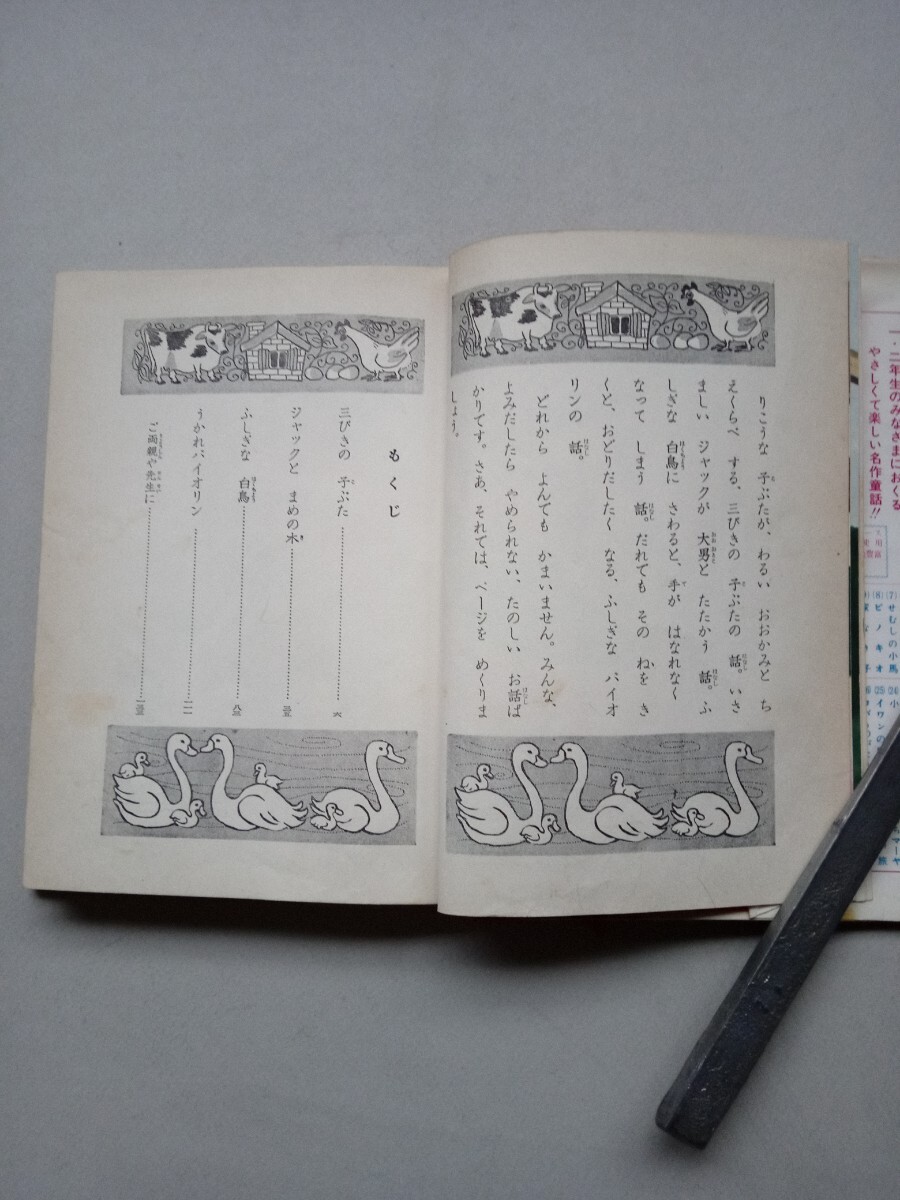 一・二年生のみなさまにおくる
やさしくて楽しい名作童話!!
せむしの小馬
ピノキオ
りこうな 子ぶたが、わるい おおかみと ち
えくらべ する、三びきの 子ぶたの 話。いさ
ましい ジャックが 大男と たたかう 話。ふ
しぎな 白鳥に さわると、手が はなれなく
なって しまう 話。だれでも その ねを き
くと、おどりだしたく なる、ふしぎな バイオ
リンの 話。
どれから よんでも かまいません。みんな、
よみだしたら やめられない、たのしい お話ば
かりです。さあ、それでは、ページを めくりま
しょう。
もくじ
三びきの 子ぶた 六
ジャックと まめの木
ふしぎな 白鳥 八三
うかれバイオリン 一一一
ご両親や先生に